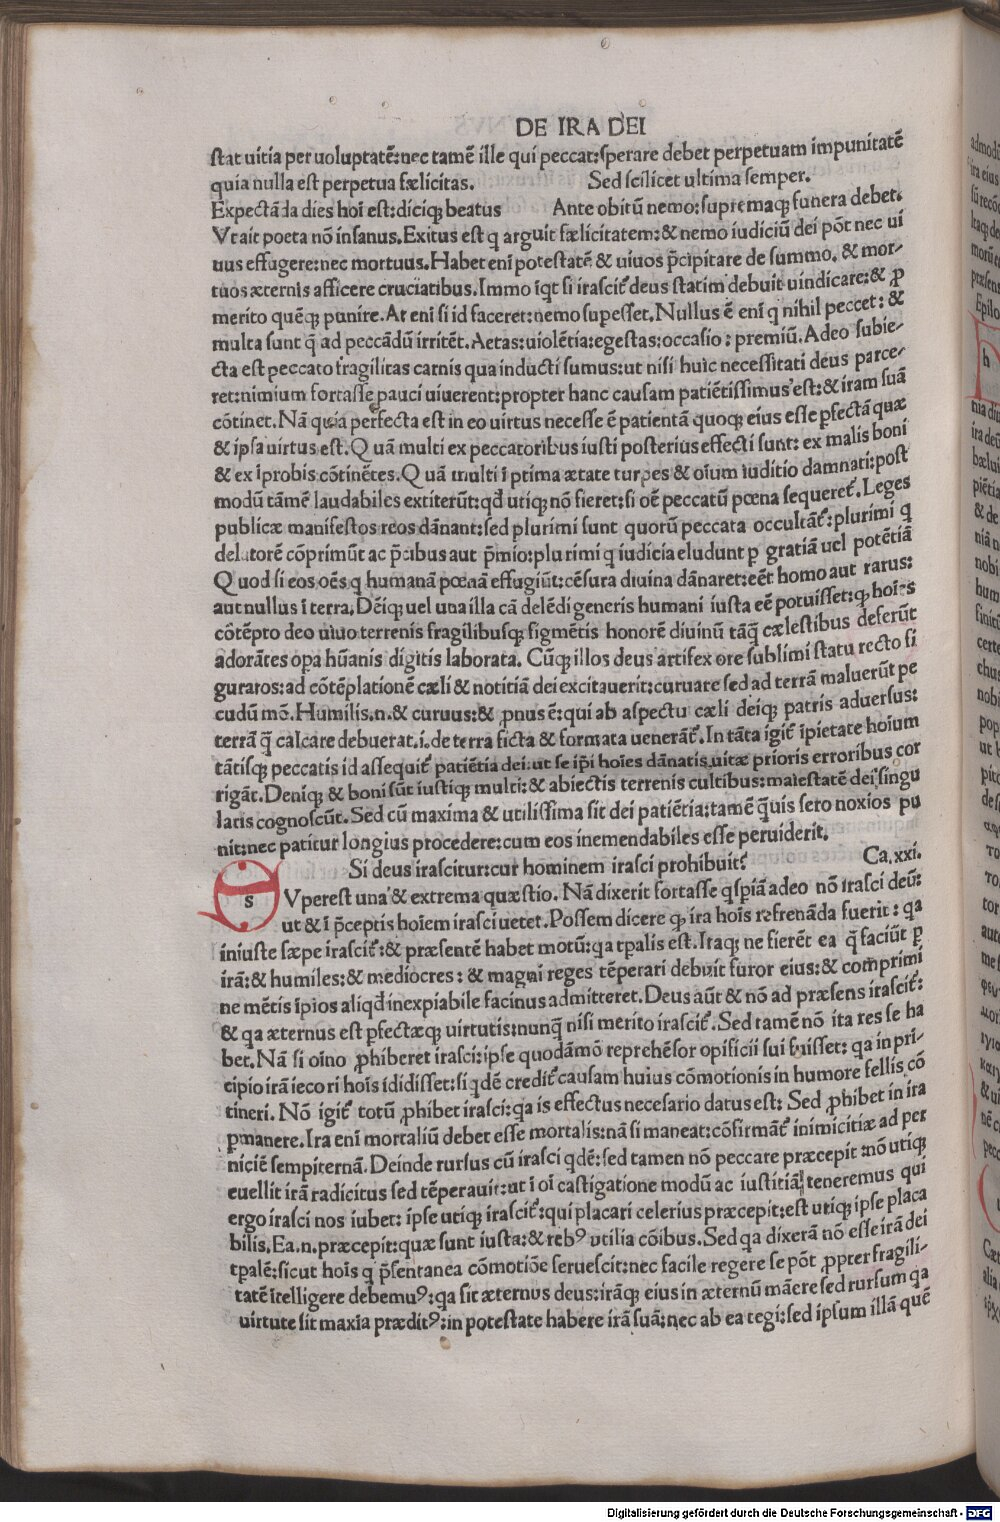 DE IRA DEI
ſtat uitia per uoluptatē:nec tamē ille qui peccat:ſperare debet perpetuam impunitatē
quia nulla eſt perpetua fælicitas. Sed ſcilicet ultima ſemper.
Expectāda dies hoī eſt:diciqꝫ beatus Ante obitū nemo:ſupremaqꝫ funera debet.
Vt ait poeta nō inſanus.Exitus eſt q arguit fælicitatem:& nemo iudiciū dei pōt nec ui
uus effugere:nec mortuus.Habet enī poteſtatē & uiuos p̄cipitare de ſummo. & mor-
tuos æternis afficere cruciatibus.Immo īqt ſi iraſcit᷑ deus ſtatim debuit uindicare:& ꝓ
merito quēqꝫ punire.At enī ſi id faceret:nemo ſuꝑeſſet.Nullus ē enī q nihil peccet: &
multa ſunt q̄ ad peccādū irritēt.Aetas:uiolētia:egeſtas:occaſio: premiū.Adeo ſubie-
cta eſt peccato fragilitas carnis qua inducti ſumus:ut niſi huic neceſſitati deus parce-
ret:nimium fortaſſe pauci uiuerent:propter hanc cauſam patiētiſſimus eſt:& iram ſuā
cōtinet.Nā quia perfecta eſt in eo uirtus neceſſe ē patientā quoqꝫ eius eſſe ꝑfectā quæ
& ipſa uirtus eſt.Quā multi ex peccatoribus iuſti poſterius effecti ſunt: ex malis boni
& ex īprobis cōtinētes.Quā multi ī ptima ætate turpes & oīum iuditio damnati:poſt
modū tāmē laudabiles extiterūt:qd̄ utiqꝫ nō fieret:ſi oē peccatū pœna ſequeret᷑.Leges
publicæ manifeſtos reos dānant:ſed plurimi ſunt quorū peccata occultāt᷑:plurimi q
delatorē cōprimūt ac p̄cibus aut p̄mio:plurimi q iudicia eludunt ꝑ gratiā uel potētiā
Quod ſi eos oēs q humanā pœnā effugiūt:cēſura diuina dānaret:eēt homo aut rarus:
aut nullus ī terra.Dēiqꝫ uel una illa cā delēdi generis humani iuſta eē potuiſſet:ꝙ hoīes
cōtēpto deo uiuo terrenis fragilibuſqꝫ figmētis honorē diuinū tāq̄ cæleſtibus deferūt
adorātes opa hūanis digitis laborata. Cūqꝫ illos deus artifex ore ſublimi ſtatu recto fi
guratos:ad cōtēplationē cæli & notitiā dei excitauerit:curuare ſed ad terrā maluerūt pe
cudū mō.Humilis.n.& curuus:& ꝓnus ē:qui ab aſpectu cæli deiqꝫ patris aduerſus:
terrā q̄ calcare debuerat.i.de terra ficta & formata ueneraƭ᷑.In tāta igit᷑ īpietate hoīum
tātiſqꝫ peccatis id aſſequit᷑ patiētia dei:ut ſe ip̄i hoīes dānatis uitæ prioris erroribus cor
rigāt.Deniqꝫ & boni ſūt iuſtiqꝫ multi:& abiectis terrenis cultibus:maieſtatē dei ſingu
laris cognoſcūt.Sed cū maxima & utiliſſima ſit dei patiētia:tamē q̄uis ſero noxios pu
nit:nec patitur longius procedere:cum eos inemendabiles eſſe peruiderit.
Si deus iraſcitur:cur hominem iraſci prohibuit. Ca.xxi.
s Vpereſt una & extrema quæſtio. Nā dixerit fortaſſe qſpiā adeo nō iraſci deū:
ut & ī p̄ceptis hoīem iraſci uetet.Poſſem dicere ꝙ ira hoīs refrenāda fuerit: qa
iniuſte ſæpe iraſcit᷑:& præſentē habet motū:qa tpalis eſt.Itaqꝫ ne fierēt ea q̄ faciūt ꝑ
irā:& humiles:& mediocres: & magni reges tēperari debuit furor eius:& comprimi
ne mētis īpios aliqd̄ inexpiabile facinus admitteret.Deus aūt & nō ad præſens iraſcit᷑:
& qa æternus eſt ꝑfectæqꝫ uirtutis:nunq̄ niſi merito iraſcit᷑.Sed tamē nō ita res ſe ha
bet.Nā ſi oīno ꝓhiberet iraſci:ipſe quodāmō reprehēſor opificii ſui fuiſſet: qa in pri-
cipio irā iecori hoīs īdidiſſet:ſiqdē credit᷑ cauſam huius cōmotionis in humore fellis cō
tineri. Nō igit᷑ totū ꝓhibet iraſci:qa is effectus neceſario datus eſt: Sed ꝓhibet in ira
ꝑmanere.Ira enī mortaliū debet eſſe mortalis:nā ſi maneat:cōfirmāt᷑ inimicitiæ ad per
niciē ſempiternā.Deinde rurſus cū iraſci qdē:ſed tamen nō peccare præcepit :nō utiqꝫ
euellit irā radicitus ſed tēperauit:ut ī oī caſtigatione modū ac iuſtitiā teneremus qui
ergo iraſci nos iubet: ipſe utiqꝫ iraſcit᷑:qui placari celerius præcepit:eſt utiqꝫ ipſe placa
bilis.Ea.n.præcepit:quæ ſunt iuſta:& rebꝰ utilia cōibus.Sed qa dixerā nō eſſe irā dei
tpalē:ſicut hoīs q p̄ſentanea cōmotiōe ferueſcit:nec facile regere ſe pōt ꝓpter fragili-
tatē ītelligere debemuꝰ:qa ſit æternus deus:irāqꝫ eius in æternū māere ſed rurſum qa
uirtute ſit maxīa præditꝰ:in poteſtate habere irā ſuā:nec ab ea regi:ſed ipſum illā quē
Digitalisierung gefördert durch die Deutsche Forschungsgemeinschaft - DFG